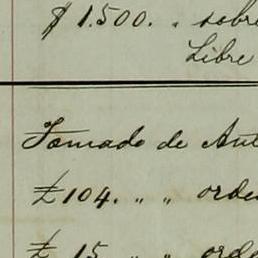 $ 1.500. " sobre
Libre
Tomado de Ant
£ 104. " " orde
£ 15 " " orde